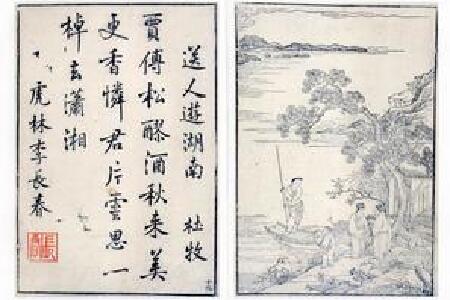 送人遊湖南 杜牧
賈傅松醪酒秋来美
更香憐君片雲思一
棹去瀟湘
虎林李長春